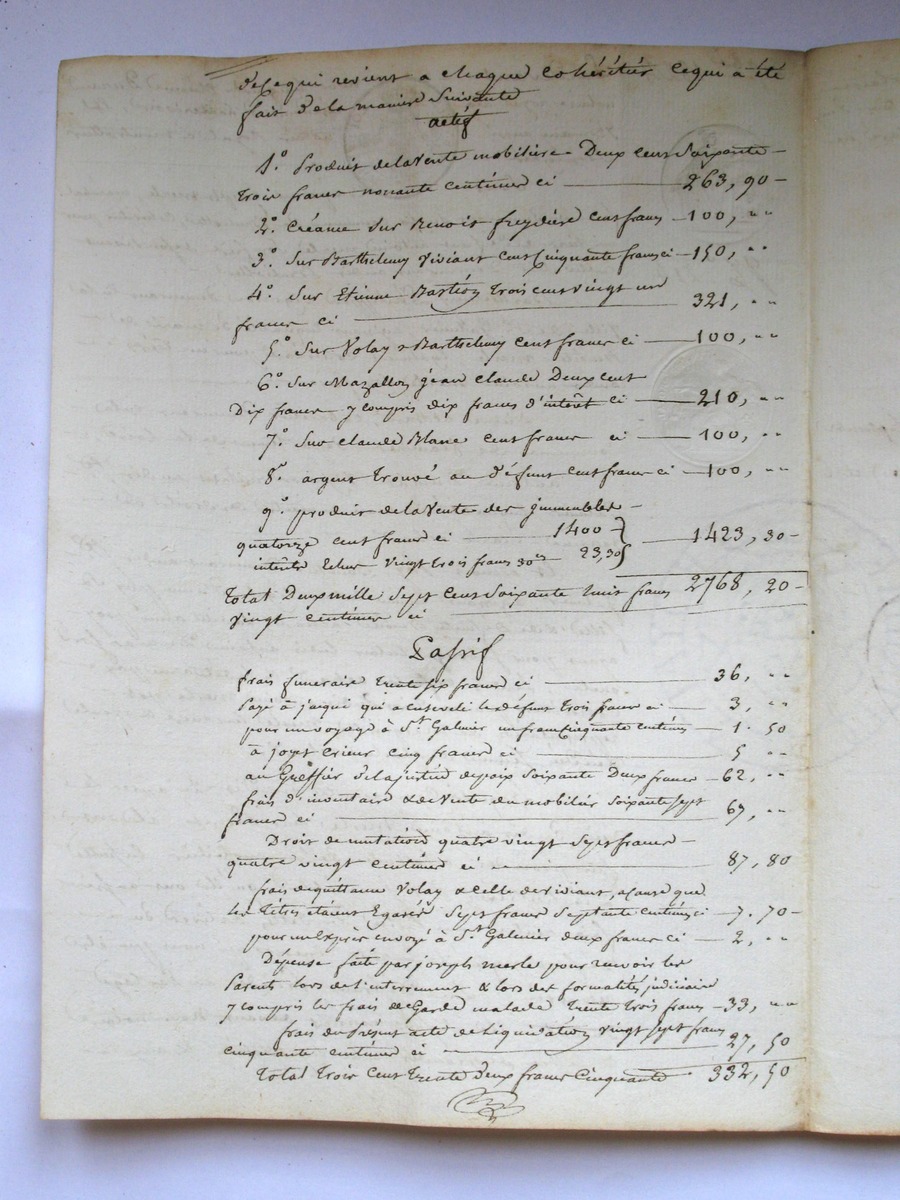 de ce qui revient a chaque cohéritier ce qui a été
fait de la maniere suivante
actif
1.° Produit de la vente mobiliere Deux cent soixante
trois francs nonante centimes ci 263, 90
2.° Créance sur Benoit freydiere cent francs 100, ""
3.° sur Barthelemy Viviant cent cinquante francs ci 150, ""
4.° sur Etienne Bastion trois cent vingt un
francs ci 321, ""
5.° sur Volay Barthelemy cent francs ci 100, ""
6.° sur Mazallon jean claude Deux cent
Dix francs y compris dix francs d'intérêt ci 210, ""
7.° sur claude Blanc cent francs ci 100, ""
8.° argent trouvé au défunt cent francs ci 100, ""
9.° produit de la vente des immeubles
quatorze cent francs ci 1400 } 1423, 30
intérêts échus vingt trois francs 30 23,30
Total Deux mille sept cent soixante huit francs 2768, 20
vingt centimes ci
Passif
frais funeraire trente six francs ci 36, ""
Payé à jacque qui a enseveli le défunt trois francs ci 3, ""
pour un voyage à St. Galmier un franc cinquante centimes 1. 50
à joyet crieur cinq francs ci 5 ""
au Greffier de la justice de paix soixante Deux francs 62, ""
frais d'inventaire & de vente du mobilier soixante sept
francs ci 67, ""
Droit de mutation quatre vingt sept francs
quatre vingt centimes ci 87, 80
frais de quittance Volay & celle de viviant, a cause que
les titres étaient Egarés sept francs septante centimes ci 7. 70
pour un Exprès envoyé à St. Galmier deux francs ci 2, ""
Dépense faite par joseph merle pour recevoir les
Parents lors de l'interrement & lors des formalités judiciaire
y compris les frais de Garde malade trente trois francs 33, ""
frais du Présent acte de liquidation vingt sept francs
cinquante centimes ci 27, 50
Total trois cent trente deux francs cinquante 332, 50